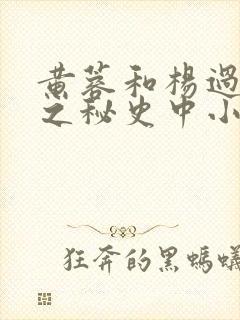 黄蓉和杨过
之秘史中小
狂奔的黑蚂蚁